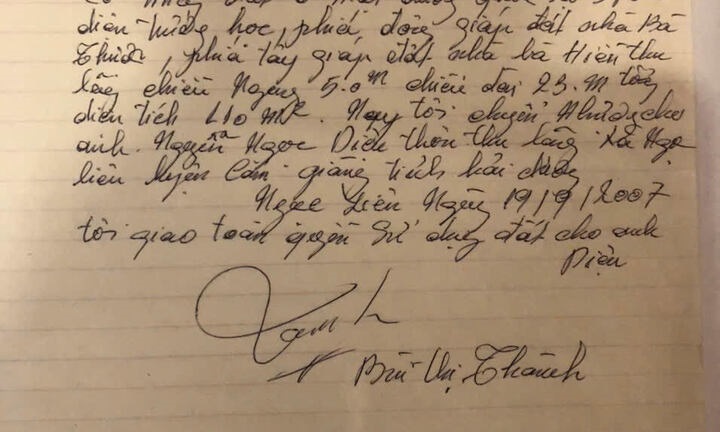 diện trường học, phía đông giáp đất nhà Bà
Thược, phía tây giáp đất nhà bà Hiên thu
lãng chiều Ngang 5.0m chiều dài 23.m tổng
diện tích 110 m2. Nay tôi chuyển Nhượng cho
anh. Nguyễn Ngọc Diện thôn thu lãng xã Ngọc
liên huyện Cẩm giàng tỉnh hải dương
Ngọc Liên Ngày 19/9/2007
tôi giao toàn quyền sử dụng đất cho anh
Diện
Bùi thị Thành